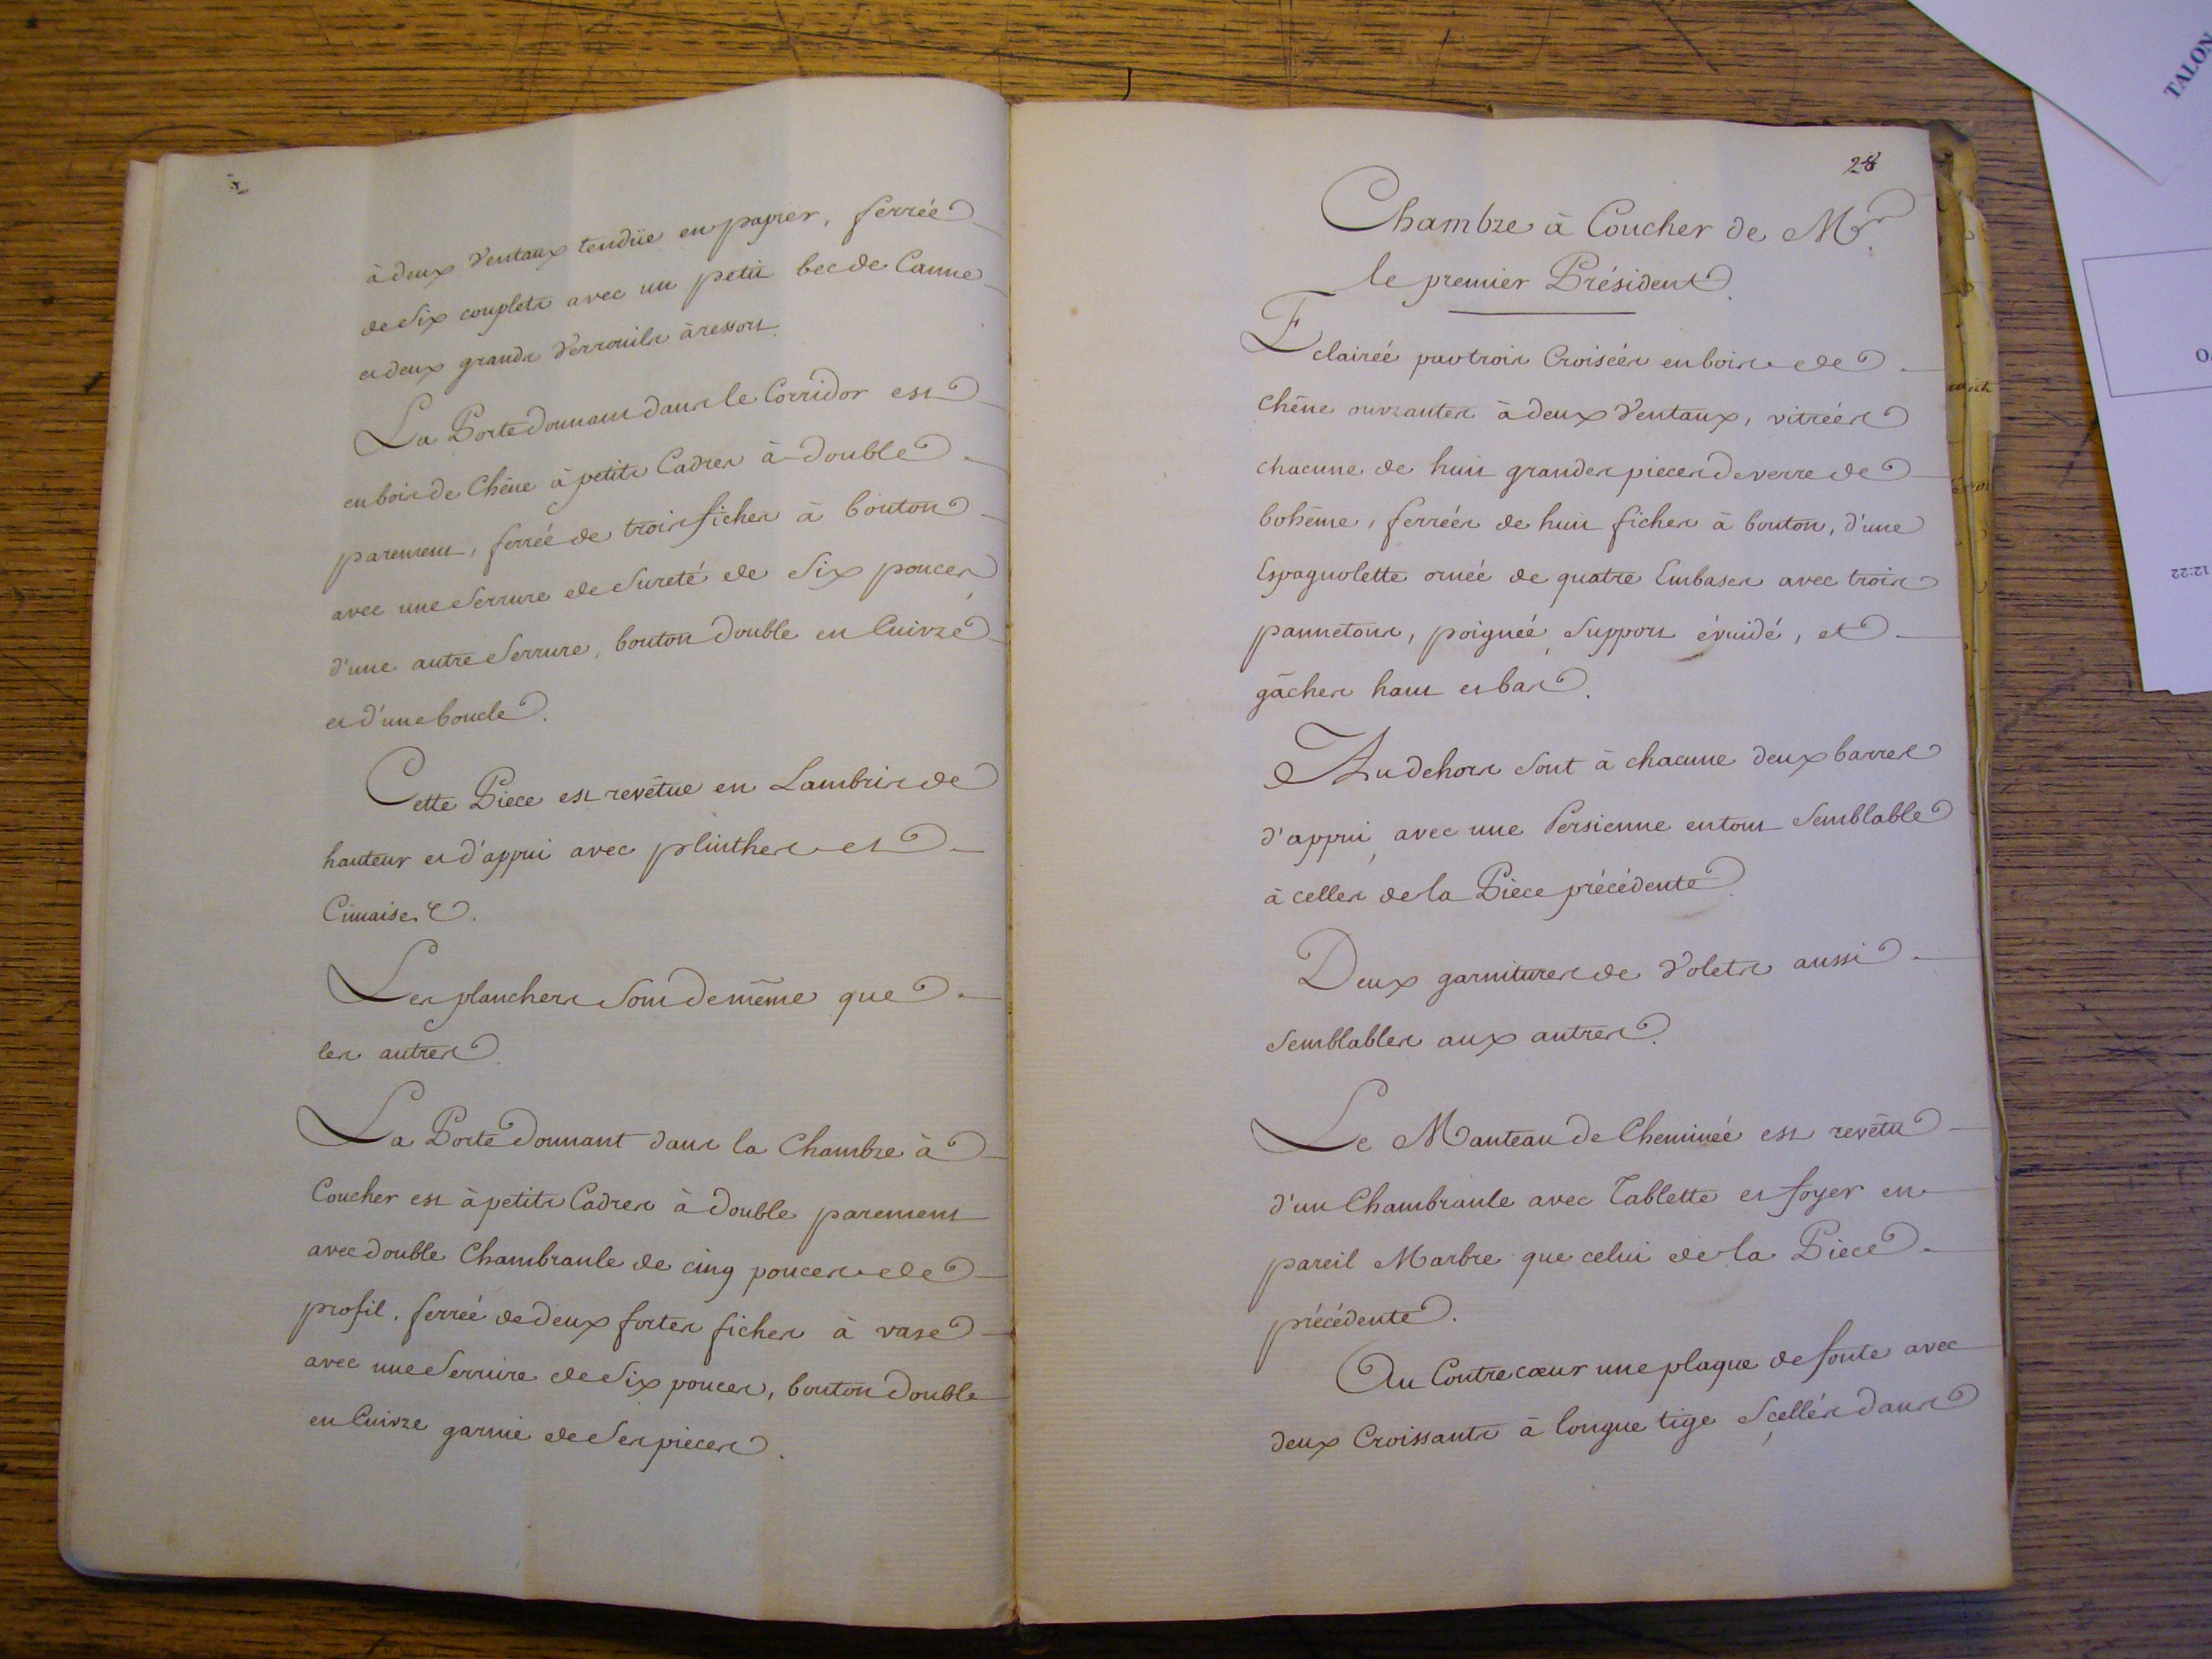 à deux Ventaux tendüe en papier, ferrée
de Six couplets avec un petit bec de Canne
et deux grands Verrouils à ressort.
La Porte donnant dans le Corridor est
en bois de Chêne à petits Cadres à double
parement, ferrée de trois fiches à bouton
avec une Serrure de Sureté de Six pouces,
d'une autre Serrure, bouton double en Cuivre
et d'une boucle.
Cette Piece est revêtue en Lambris de
hauteur et d'appui avec plinthes et
Cimaises.
Les planchers Sont de même que
les autres.
La Porte donnant dans la Chambre à
Coucher est à petits Cadres à double parement
avec double Chambranle de cinq pouces de
profil. ferrée de deux fortes fiches à vase
avec une Serrure de Six pouces, bouton double
en Cuivre garnie de Ses pieces.
28
Chambre à Coucher de Mr.
le premier Président.
Eclairée par trois Croisées en bois de
chêne ouvrantes à deux Ventaux, vitrées
chacune de huit grandes pieces de verre de
bohême, ferrées de huit fiches à bouton, d'une
Espagnolette ornée de quatre Embases avec trois
pannetons, poignée, Support évuidé, et
gâches haut et bas.
Au dehors Sont à chacune deux barres
d'appui, avec une Persienne en tout Semblable
à celles de la Pièce précédente.
Deux garnitures de Volets aussi
Semblables aux autres.
Le Manteau de Cheminée est revêtu
d'un Chambranle avec Tablette et foyer en
pareil Marbre que celui de la Piece
précédente.
Au Contre cœur une plaque de fonte avec
deux Croissants à longue tige Scellés dans
TALON
12:22